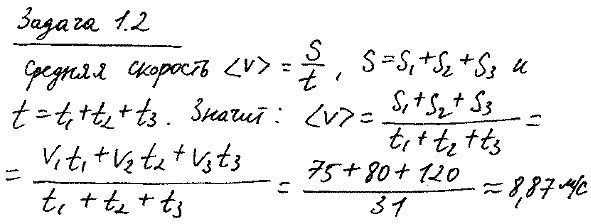 Задача 1.2
средняя скорость <v> = S/t, S = S₁+S₂+S₃ и
t = t₁+t₂+t₃. Значит: <v> = (S₁+S₂+S₃)/(t₁+t₂+t₃) =
= (v₁t₁+v₂t₂+v₃t₃)/(t₁+t₂+t₃) = (75+80+120)/31 ≈ 8,87 м/с